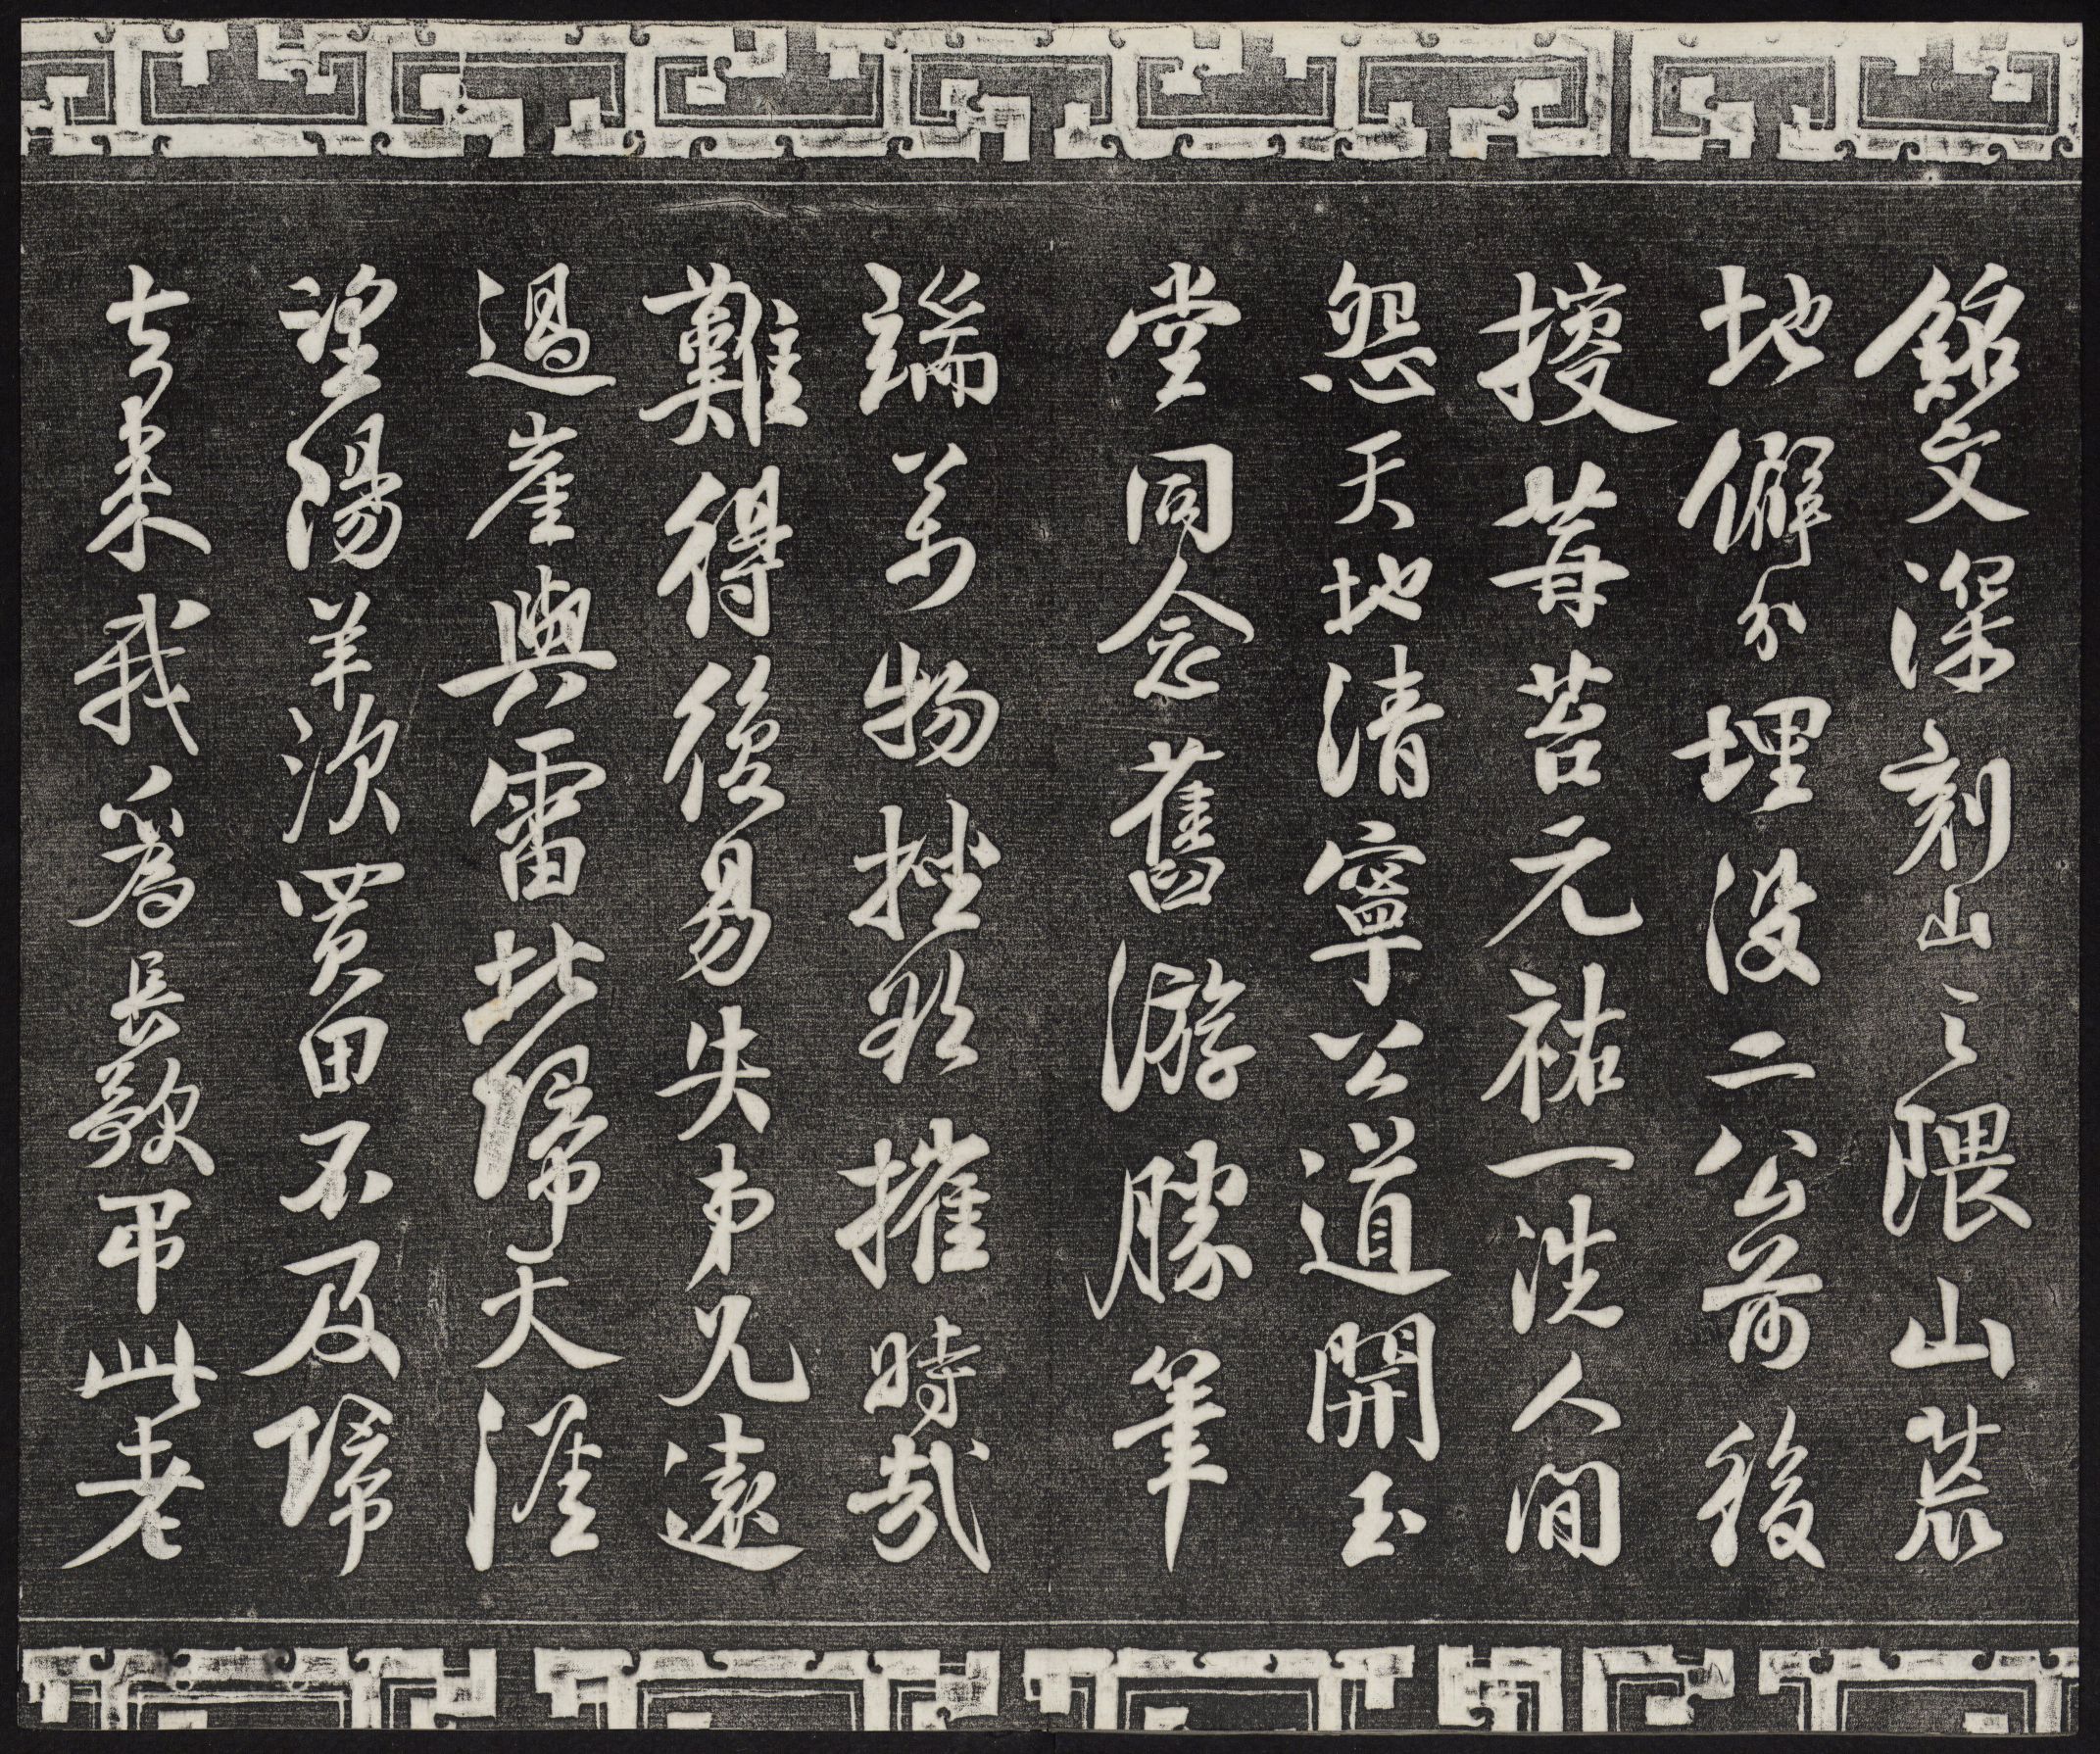 銘文深刻山之隈山荒
地僻分埋没二公前後
莓苔元祐一洗人間
怨天地清寧公道開玉
堂同念舊游勝筆
端萬物挫欲摧時哉
難得復易失弟兄遠
過崖與雷北歸天涯
望陽羨買田不及歸
去來我爲長歌弔此老